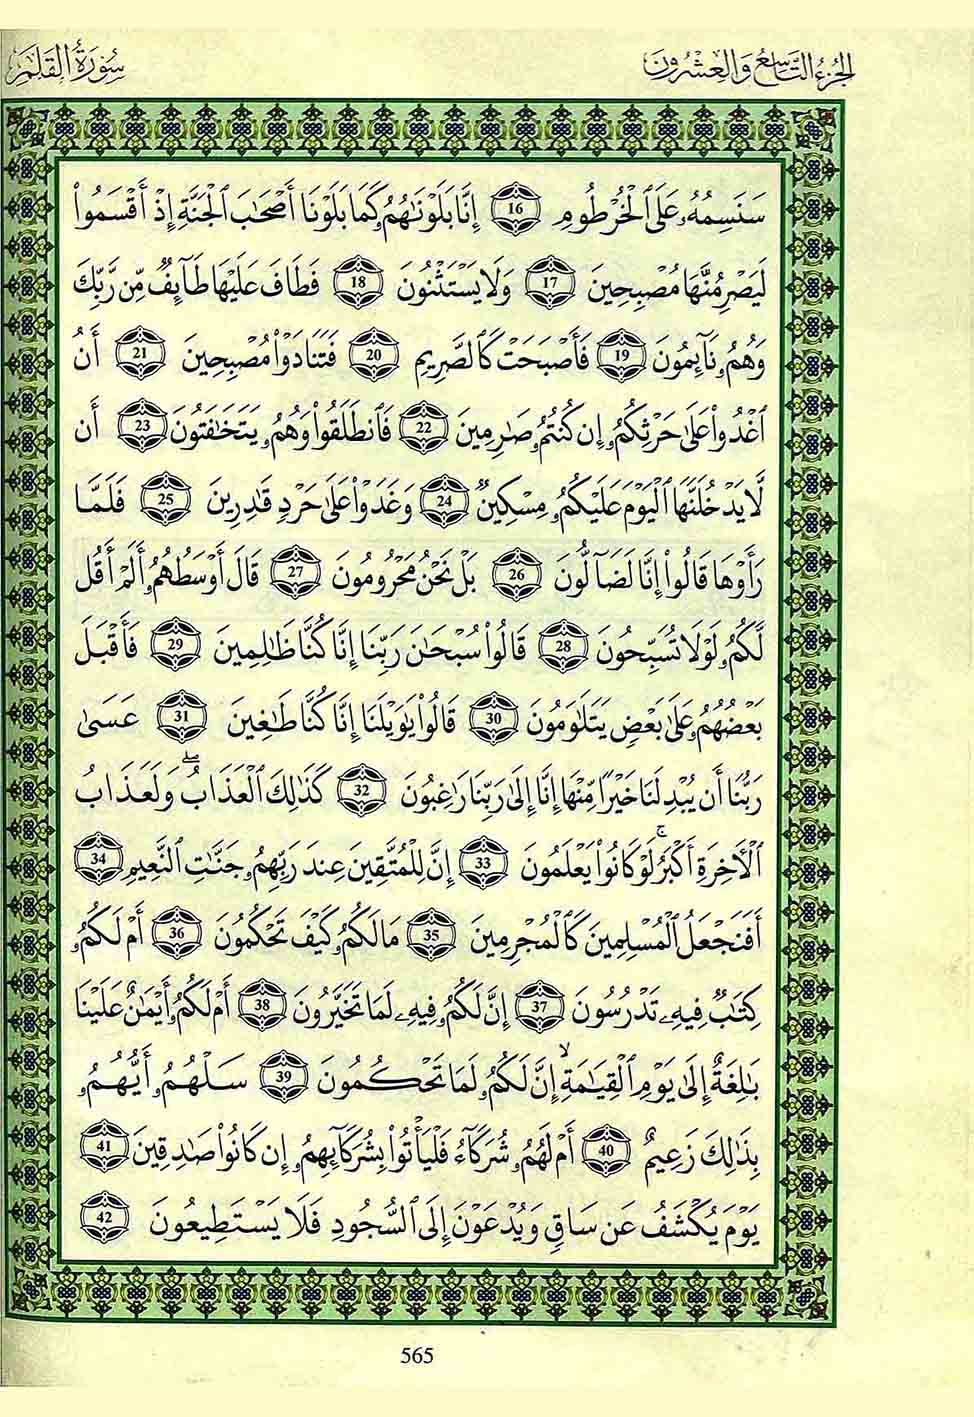 الجزء التاسع والعشرون
سورة القلم
سَنَسِمُهُۥ عَلَى ٱلْخُرْطُومِ 16 إِنَّا بَلَوْنَٰهُمُۥ كَمَا بَلَوْنَا أَصْحَٰبَ ٱلْجَنَّةِ إِذْ أَقْسَمُوا۟
لَيَصْرِمُنَّهَا مُصْبِحِينَ 17 وَلَا يَسْتَثْنُونَ 18 فَطَافَ عَلَيْهَا طَآئِفٌ مِّن رَّبِّكَ
وَهُمُۥ نَآئِمُونَ 19 فَأَصْبَحَتْ كَٱلصَّرِيمِ 20 فَتَنَادَوْا۟ مُصْبِحِينَ 21 أَنُ
ٱغْدُوا۟ عَلَىٰ حَرْثِكُمُۥ إِن كُنتُمُۥ صَٰرِمِينَ 22 فَٱنطَلَقُوا۟ وَهُمُۥ يَتَخَٰفَتُونَ 23 أَن
لَّا يَدْخُلَنَّهَا ٱلْيَوْمَ عَلَيْكُمُۥ مِسْكِينٌ 24 وَغَدَوْا۟ عَلَىٰ حَرْدٍ قَٰدِرِينَ 25 فَلَمَّا
رَأَوْهَا قَالُوا۟ إِنَّا لَضَآلُّونَ 26 بَلْ نَحْنُ مَحْرُومُونَ 27 قَالَ أَوْسَطُهُمُۥ أَلَمْ أَقُل
لَّكُمُۥ لَوْلَا تُسَبِّحُونَ 28 قَالُوا۟ سُبْحَٰنَ رَبِّنَا إِنَّا كُنَّا ظَٰلِمِينَ 29 فَأَقْبَلَ
بَعْضُهُمُۥ عَلَىٰ بَعْضٍ يَتَلَٰوَمُونَ 30 قَالُوا۟ يَٰوَيْلَنَا إِنَّا كُنَّا طَٰغِينَ 31 عَسَىٰ
رَبُّنَا أَن يُبْدِلَنَا خَيْرًا مِّنْهَا إِنَّا إِلَىٰ رَبِّنَا رَٰغِبُونَ 32 كَذَٰلِكَ ٱلْعَذَابُ ۖ وَلَعَذَابُ
ٱلْءَاخِرَةِ أَكْبَرُ ۚ لَوْ كَانُوا۟ يَعْلَمُونَ 33 إِنَّ لِلْمُتَّقِينَ عِندَ رَبِّهِمُۥ جَنَّٰتِ ٱلنَّعِيمِ 34
أَفَنَجْعَلُ ٱلْمُسْلِمِينَ كَٱلْمُجْرِمِينَ 35 مَا لَكُمُۥ كَيْفَ تَحْكُمُونَ 36 أَمْ لَكُمُۥ
كِتَٰبٌ فِيهِۦ تَدْرُسُونَ 37 إِنَّ لَكُمُۥ فِيهِۦ لَمَا تَخَيَّرُونَ 38 أَمْ لَكُمُۥ أَيْمَٰنٌ عَلَيْنَا
بَٰلِغَةٌ إِلَىٰ يَوْمِ ٱلْقِيَٰمَةِ ۙ إِنَّ لَكُمُۥ لَمَا تَحْكُمُونَ 39 سَلْهُمُۥ أَيُّهُمُۥ
بِذَٰلِكَ زَعِيمٌ 40 أَمْ لَهُمُۥ شُرَكَآءُ فَلْيَأْتُوا۟ بِشُرَكَآئِهِمُۥ إِن كَانُوا۟ صَٰدِقِينَ 41
يَوْمَ يُكْشَفُ عَن سَاقٍ وَيُدْعَوْنَ إِلَى ٱلسُّجُودِ فَلَا يَسْتَطِيعُونَ 42
565